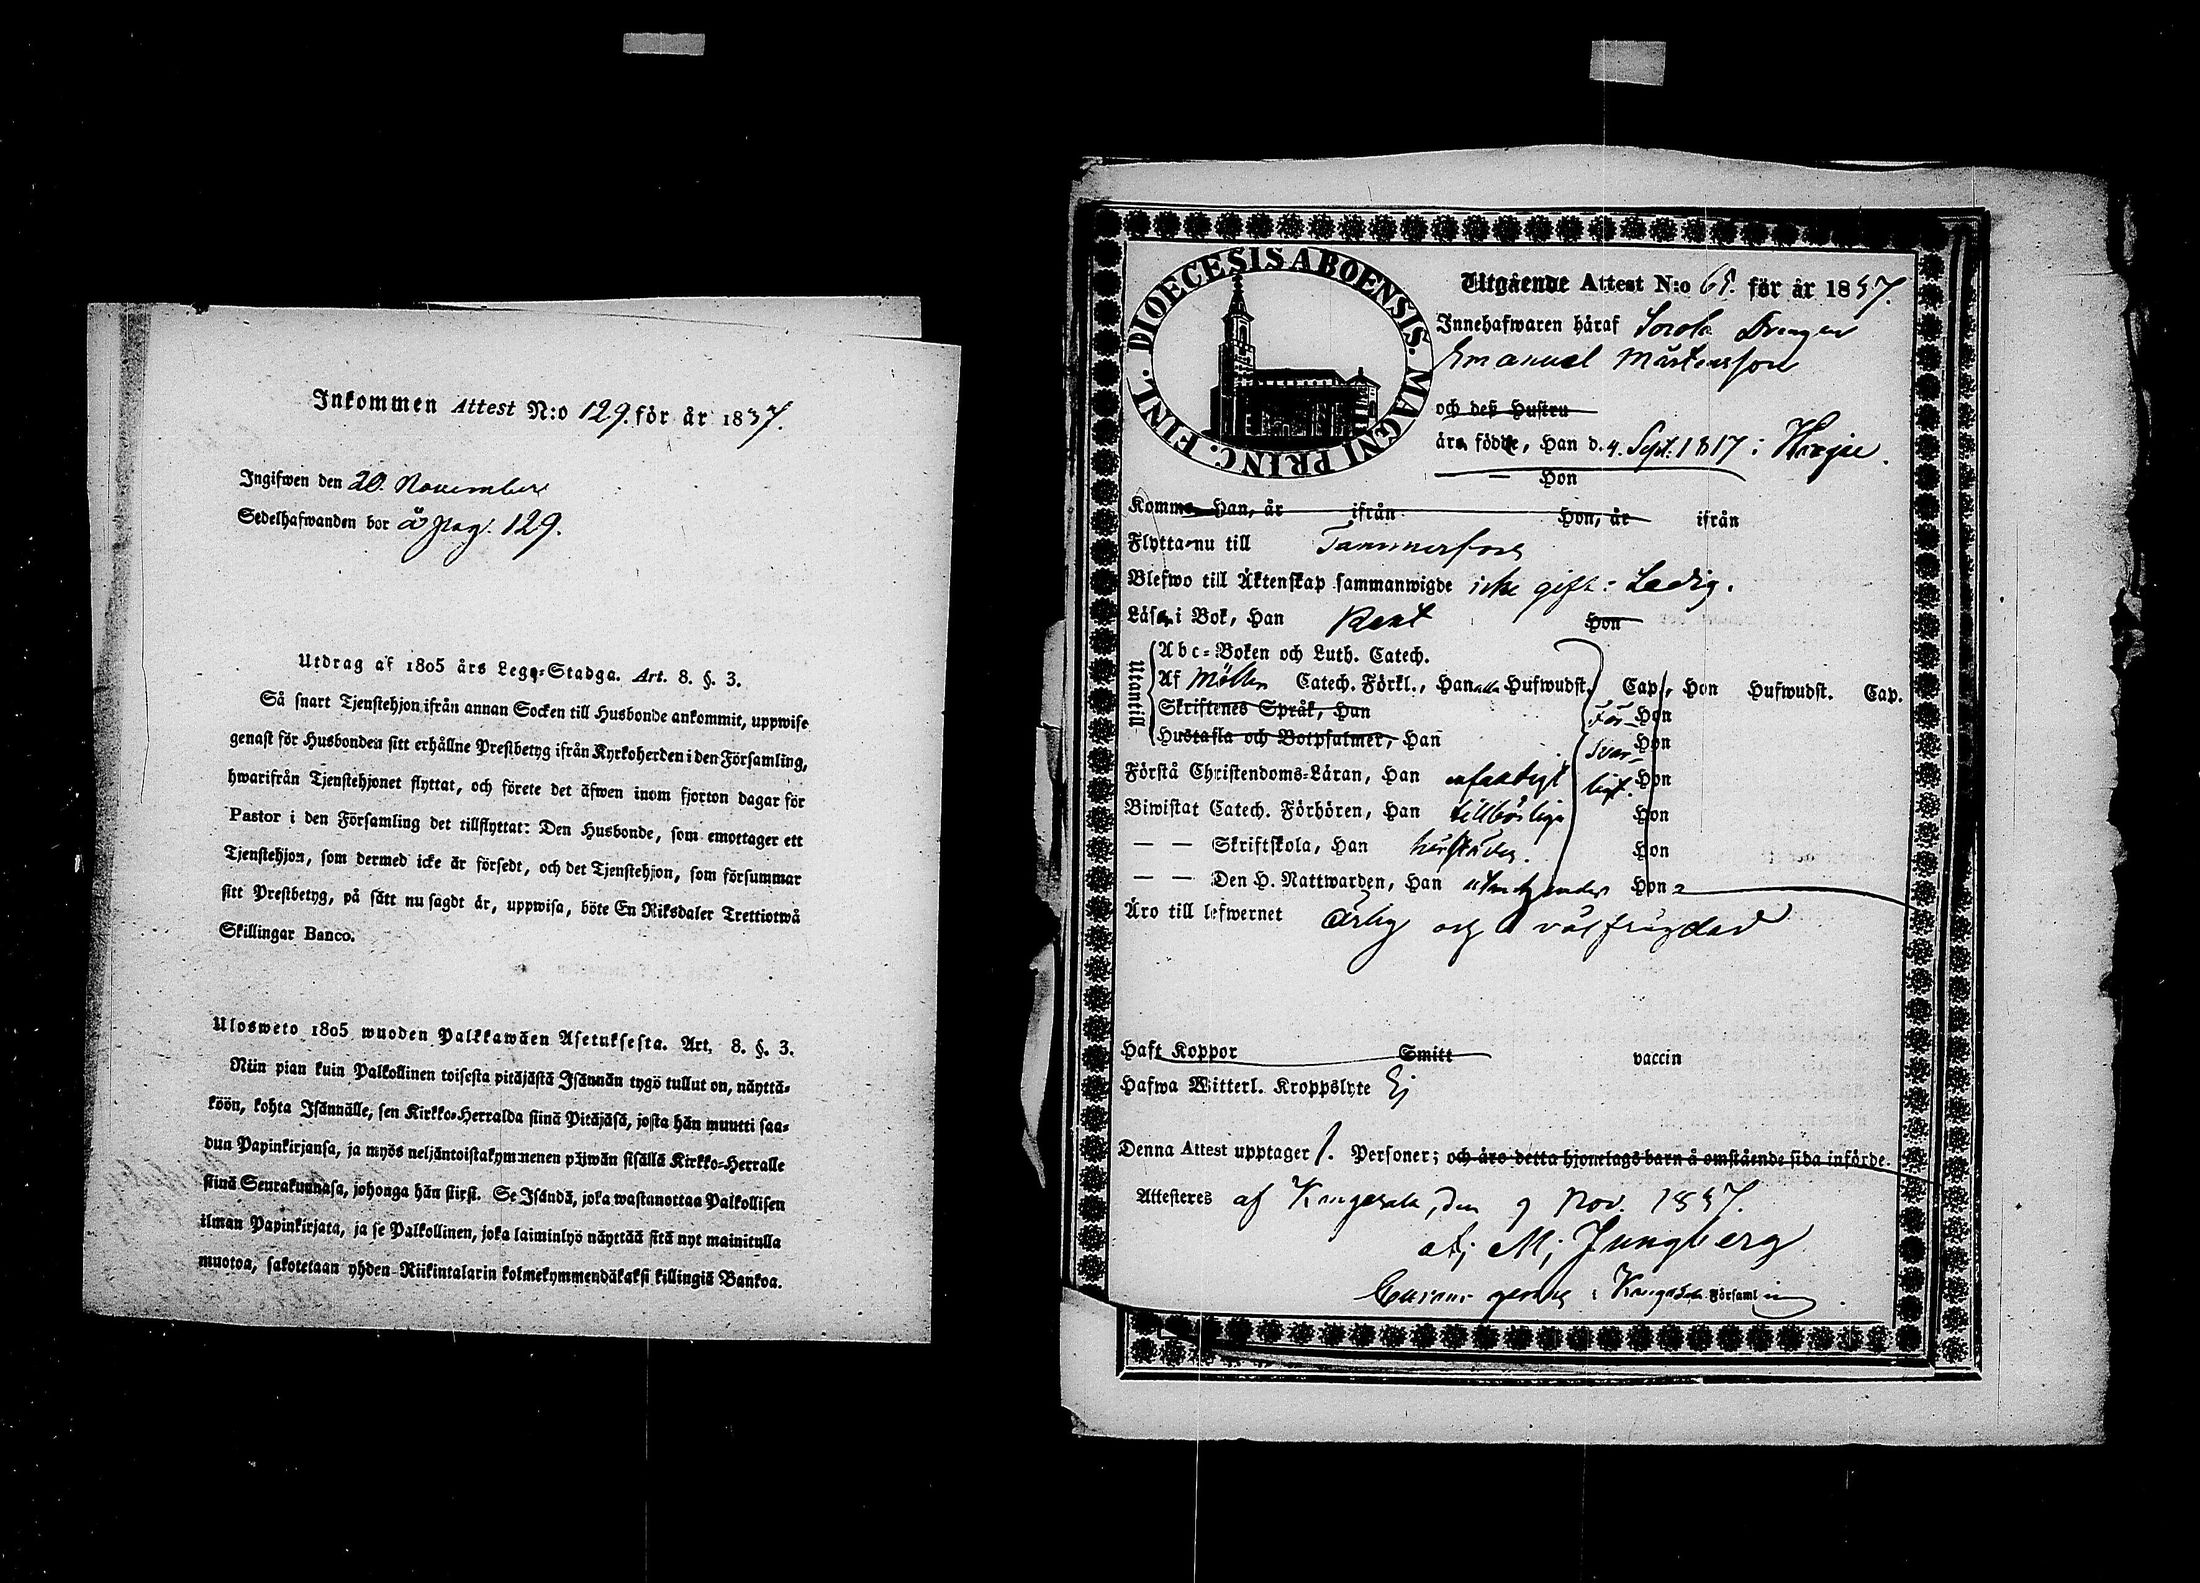 Inkommen Attest N:o 129. för år 1837.
Ingifwen den 20. November
Sedelhafwanden bor å pag. 129.
Utdrag af 1805 års Lego-Stadga. Art. 8. §. 3.
Så snart Tjenstehjon ifrån annan Socken till Husbonde ankommit, uppwise
genast för Husbonden sitt erhållne Prestbetyg ifrån Kyrkoherden i den Församling,
hwarifrån Tjenstehjonet flyttat, och förete det äfwen inom fjorton dagar för
Pastor i den Församling det tillflyttat: Den Husbonde, som emottager ett
Tjenstehjon, som dermed icke är försedt, och det Tjenstehjon, som försummar
sitt Prestbetyg, på sätt nu sagdt är, uppwisa, böte En Riksdaler Trettiotwå
Skillingar Banco.
Ulosweto 1805 wuoden Palkkawäen Asetuksesta. Art. 8. §. 3.
Niin pian kuin Palkollinen toisesta pitäjästä Isännän tygö tullut on, näyttä-
köön, kohta Isännälle, sen Kirkko-Herralda siinä Pitäjäsä, josta hän muutti saa-
dun Papinkirjansa, ja myös neljäntoistakymmenen päiwän sisällä Kirkko-Herralle
siinä Seurakunnasa, johonga hän siirsi. Se Isändä, joka wastanottaa Palkollisen
ilman Papinkirjata, ja se Palkollinen, joka laiminlyö näyttää sitä nyt mainitulla
muotoa, sakotetaan yhden Riikintalarin kolmekymmendäkaksi killingiä Bankoa.
DIOECESIS ABOENSIS. MAGNI PRINC. FINL.
Utgående Attest N:o för år 1837.
Innehafwaren häraf Sorola Drengen
Emanuel Mårtensson
och deß Hustru
äro födde, Han d. 4. Sept. 1817 i
Hon
Komme Han, år ifrån Hon, år ifrån
Flytta nu till Tammerfors
Blefwo till Äktenskap sammanwigde icke gift: Ledig.
Läsa i Bok, Han Rent Hon
Utantill
Abc-Boken och Luth. Catech.
Af Möllers Catech. Förkl., Han alla Hufwudst. Cap., Hon Hufwudst. Cap.
Skriftenes Språk, Han För- Hon
Hustafla och Botpsalmer, Han svar- Hon
Förstå Christendoms-Läran, Han enfaldigt ligt. Hon
Biwistat Catech. Förhören, Han tillbörligen Hon
— — Skriftskola, Han Hon
— — Den H. Nattwarden, Han Hon
Äro till lefwernet Ärlig och välfrägdad
Haft Koppor Smitt vaccin
Hafwa Witterl. Kroppslyte Ej
Denna Attest upptager 1. Personer; och äro detta hjonelags barn å omstående sida införde.
Attesteras af Kangasala, den 9 Nov. 1837.
Ljungberg
i Kangasala Församling